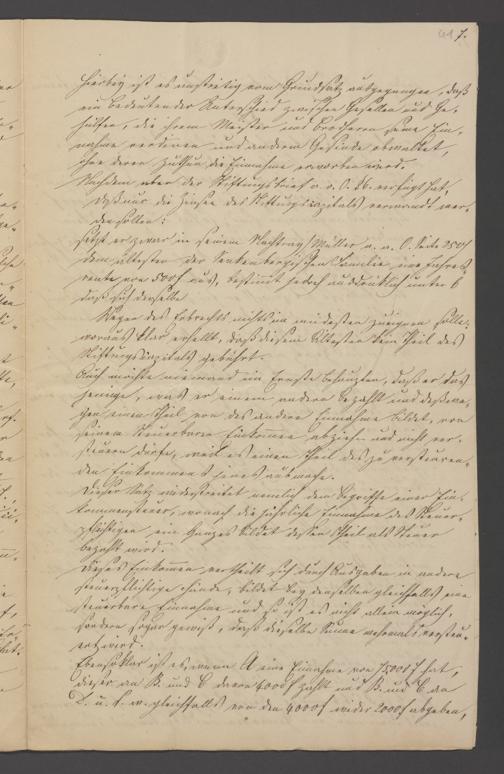 7.
Hierbey ist es unstreitig vom Grundsatz ausgegangen, daß
ein bedeutender Unterschied zwischen Gesellen und Ge-
hülfen, die ihrem Meister und Brodherrn seine Ein-
nahme verdienen und anderm Gesinde obwaltet,
ohne deren Zuthun die Einnahme erworben wird.
Nachdem aber der Stiftungsbrief a. a. O. verfügt hat,
daß nur die Zinsen des Stiftungscapitals verwendet wer-
den sollen:
setzt er zwar in seinem Nachtrag (Müller a. a. O. Seite
dem ältesten der Senkenbergischen Familie eine Jahres-
rente von 500 f aus, bestimmt jedoch ausdrücklich unter 6
daß sich derselbe
Wegen des Erbrechts nichts im mindesten zueignen solle,
woraus klar erhellt, daß diesem Ältesten kein Theil des
Stiftungscapitals gebührt.
Auch möchte niemand im Ernste behaupten, daß er das
jenige, was er einem andern bezahlt und deßwe-
gen einen Theil von des andern Einnahme bildet, von
seinem steuerbaren Einkommen abziehen und nicht ver-
steuern dürfe, weil es einen Theil des zu versteuern-
den Einkommens jenes ausmache.
Dieser Satz widerstreitet nemlich dem Begriffe einer Ein-
kommensteuer, wonach die jährliche Einnahme des Steuer-
pflichtigen ein Ganzes bildet dessen Theil als Steuer
bezahlt wird.
Dieses Einkommen vertheilt sich durch Ausgaben in andere
steuerpflichtige Hände, bildet bey denselben gleichfalls eine
steuerbare Einnahme und so ist es nicht allein möglich,
sondern sogar gewiß, daß dieselbe Summe mehrmals versteu-
ert wird.
Ebenso klar ist es, wenn A eine Einnahme von 7500 f hat,
dieser an B. und C davon 4000 f zahlt und B. und C. an
D. u. s. w. gleichfalls von den 4000 f wieder 2000 f abgeben,